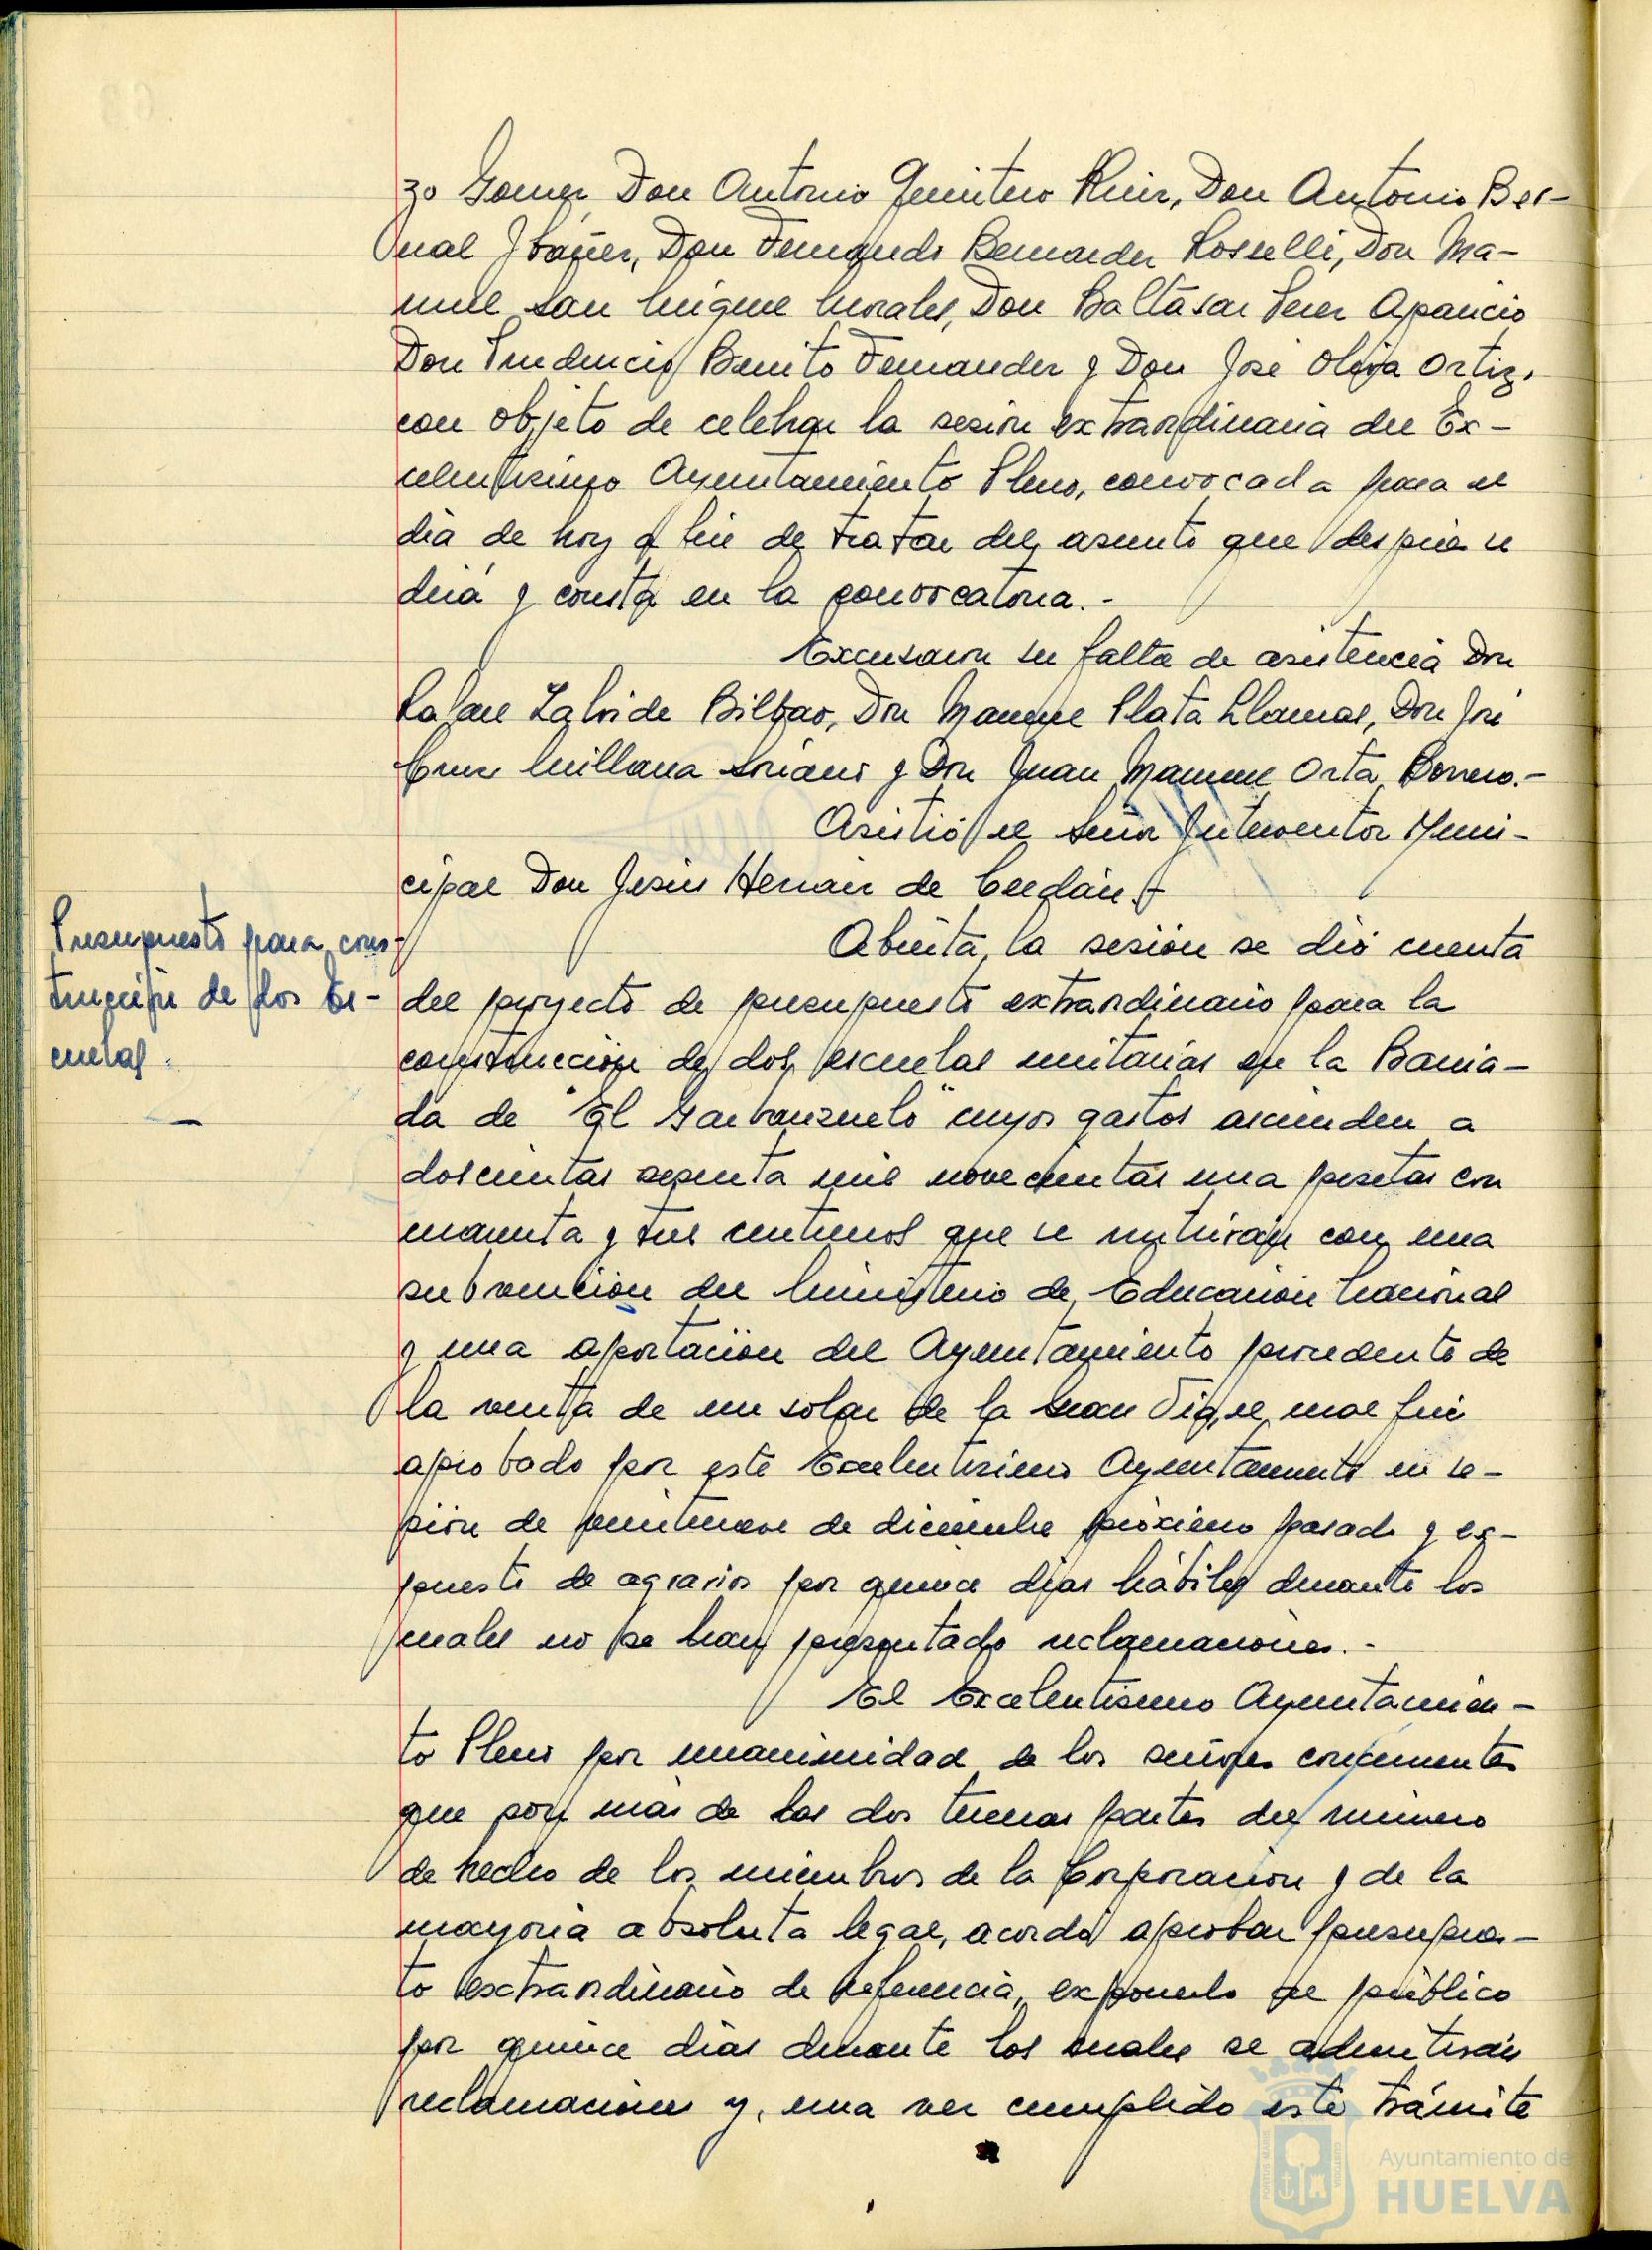 zo Gomez, Don Antonio Quintero Ruiz, Don Antonio Ber-
nal Ibáñez, Don Fernando Bernardez Rosselli, Don Ma-
nuel San Miguel Morales, Don Baltasar Perez Aparicio
Don Prudencio Benito Fernandez y Don José Oliva Ortiz,
con objeto de celebrar la sesión extraordinaria del Ex-
celentisimo Ayuntamiento Pleno, convocada para el
dia de hoy a fin de tratar del asunto que después se
dirá y consta en la convocatoria.-
Excusaron su falta de asistencia Don
Rafael Bilbao, Don Manuel Plata Llamas, Don José
Cruz Millana Soriano y Don Juan Manuel Orta Borrero.-
Asistió el Señor Interventor Muni-
cipal Don Jesús Hernán de Cerdán.-
Presupuesto para cons-
trucción de dos Es-
cuelas.
Abierta la sesión se dió cuenta
del proyecto de presupuesto extraordinario para la
construcción de dos escuelas unitarias en la Barria-
da de "El Garbanzuelo" cuyos gastos ascienden a
doscientas sesenta mil novecientas una pesetas con
cuarenta y tres centimos que se nutrirán con una
subvención del Ministerio de Educación Nacional
y una aportación del Ayuntamiento procedente de
la venta de un solar de la Gran Via, el cual fué
aprobado por este Excelentisimo Ayuntamiento en se-
sión de veintinueve de diciembre próximo pasado y ex-
puesto de agravios por quince dias hábiles durante los
cuales no se han presentado reclamaciones.-
El Excelentisimo Ayuntamien-
to Pleno por unanimidad de los señores concurrentes
que son más de las dos terceras partes del número
de hecho de los miembros de la Corporación y de la
mayoria absoluta legal, acordó aprobar presupues-
to extraordinario de referencia, exponerlo al público
por quince dias durante los cuales se admitirán
reclamaciones y, una vez cumplido este trámite
Ayuntamiento de
HUELVA